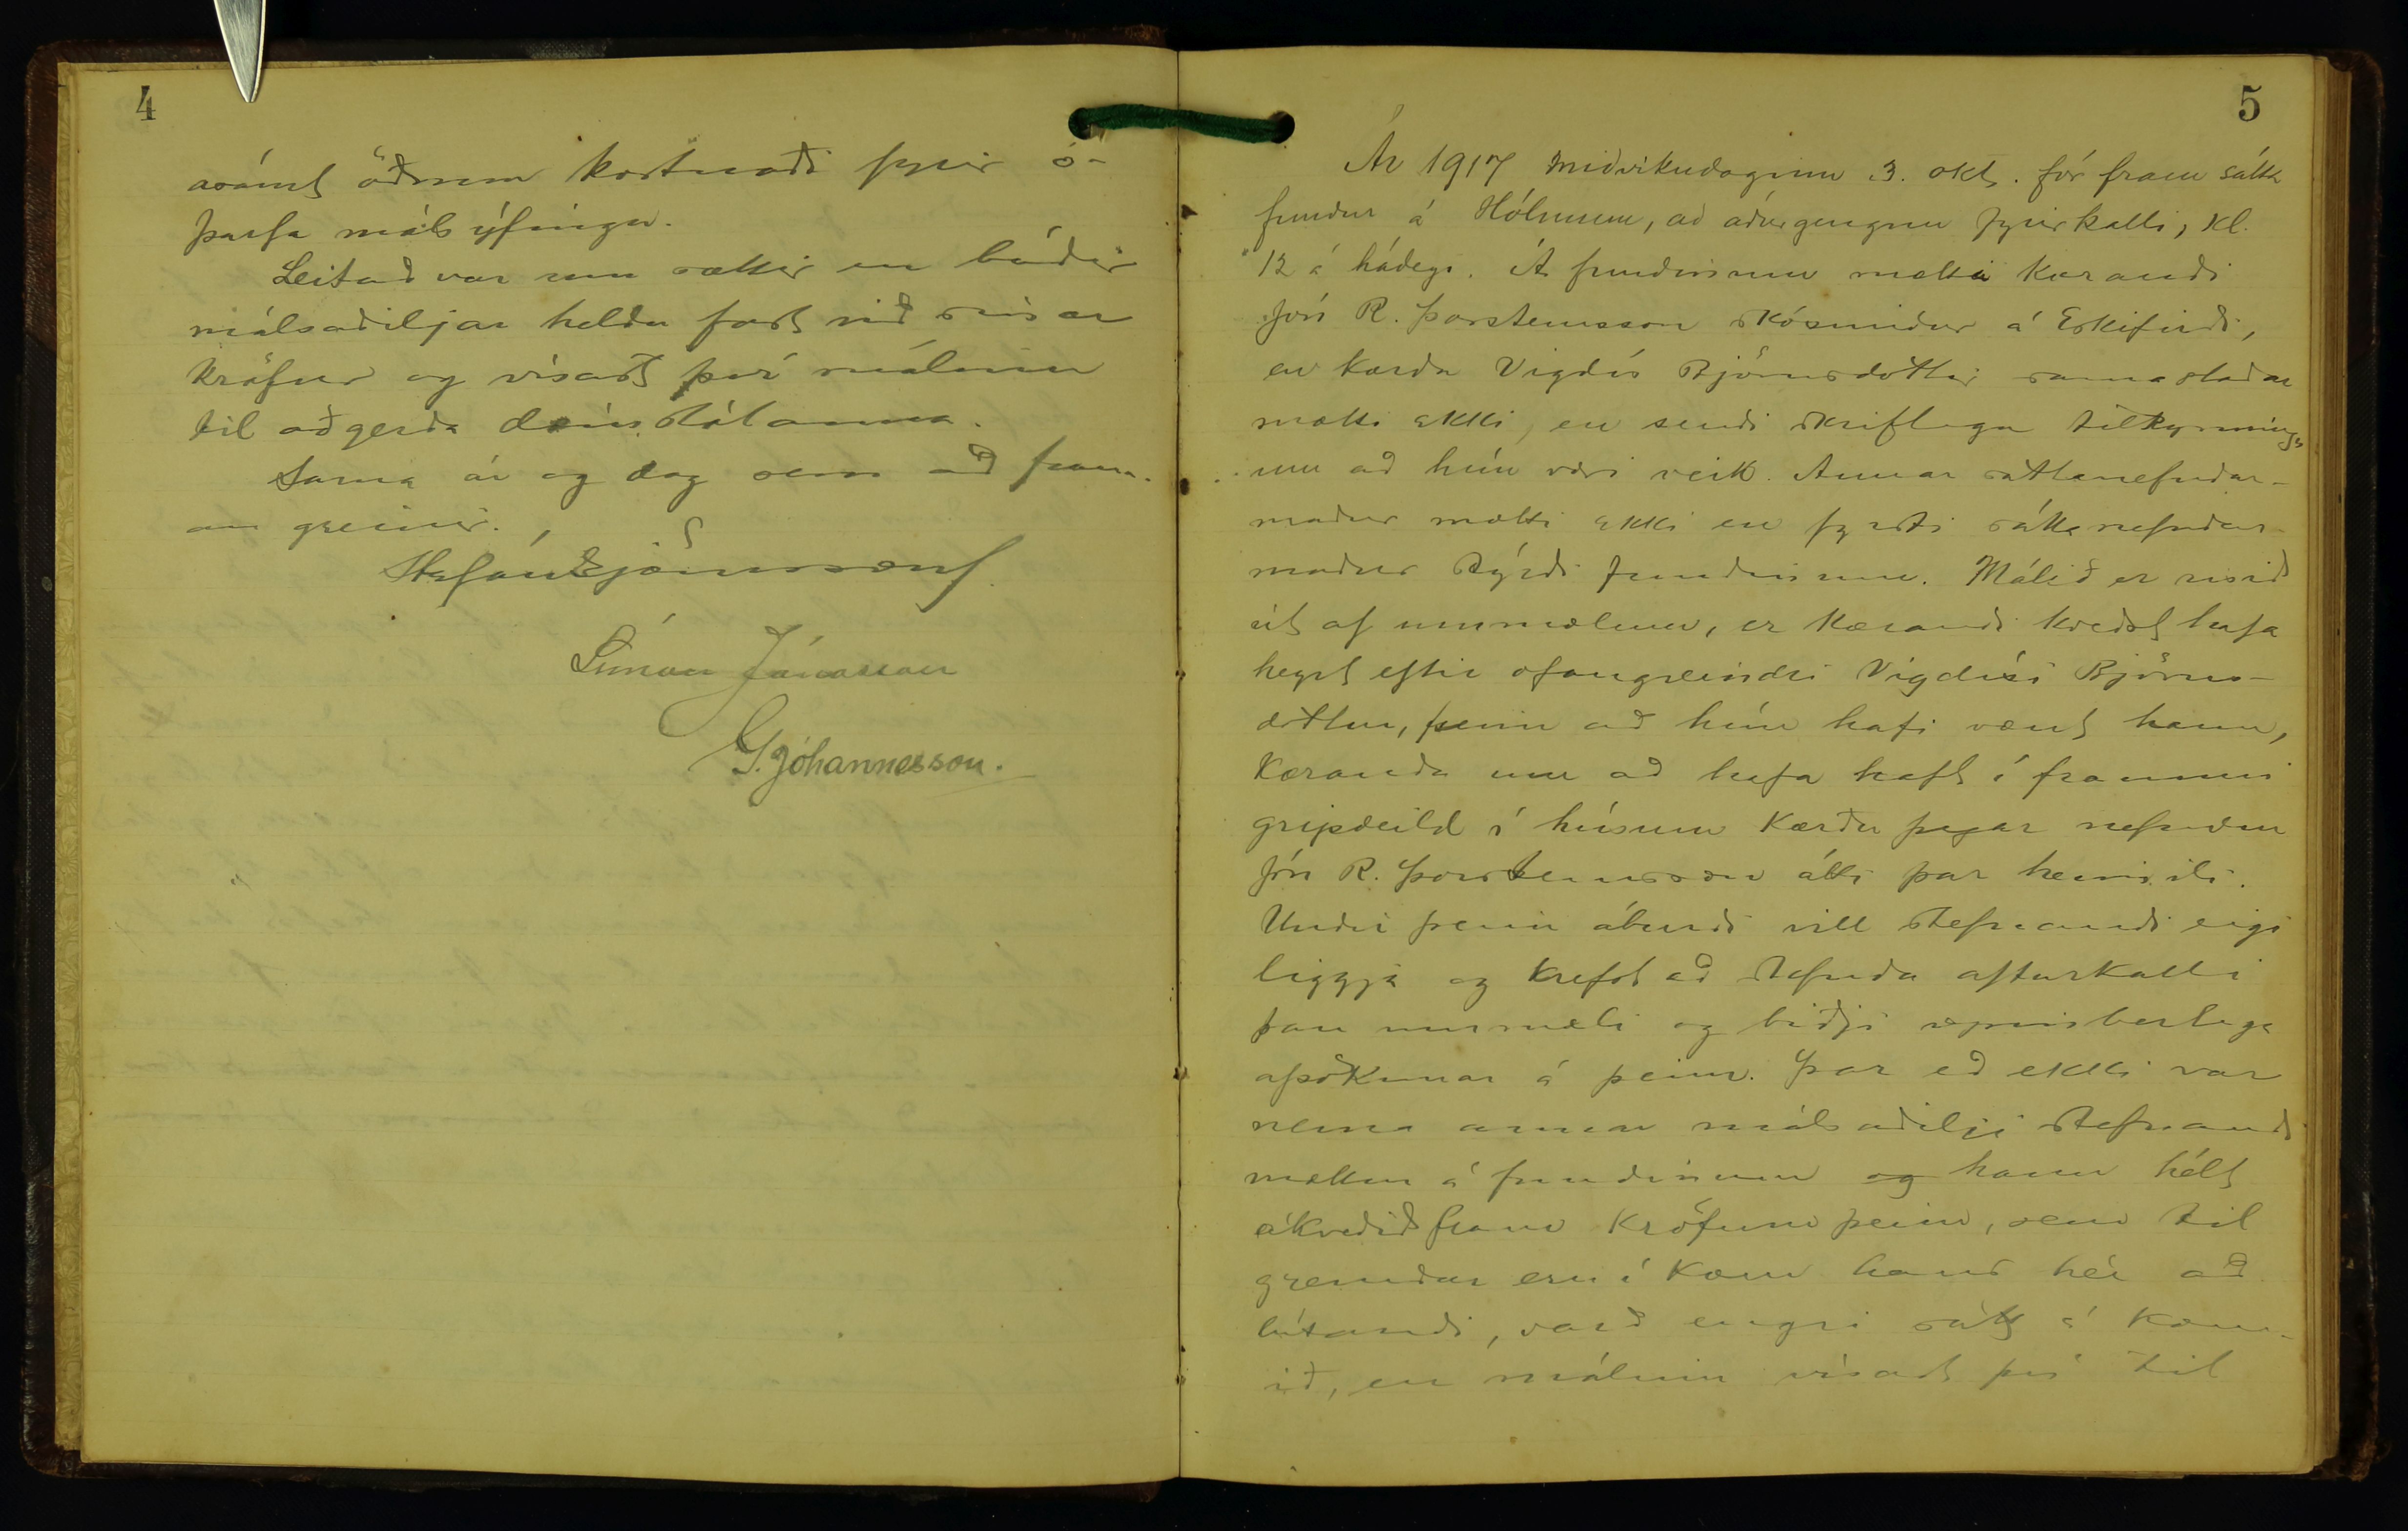 4
ásamt öðrum kostnaði fyrir ó-
þarfa máls ýfingu.
Leitað var um sættir en báðir
málsaðiljar heldu fast við sínar
kröfur og vísast því málinu
til aðgerða dómstólanna.
Sama ár og dag sem að fram-
an greinir.
Stefán Björnsson
Símon Jónasson
G. Jóhannesson.
5
Ár 1917 miðvikudaginn 3. okt. fór fram sátta
fundur á Hólmum, að áðurgengnu fyrirkalli, kl.
12 á hádegi. Á fundinum mætti kærandi
Jón R. Þorsteinsson skósmiður á Eskifirði,
en kærða Vigdís Björnsdóttir sama staðar
mætti ekki, en sendi skriflega tilkynningu
um að hún væri veik. Annar sáttanefndar-
maður mætti ekki en fyrsti sáttanefndar-
maður stýrði fundinum. Málið er risið
út af ummælum, er kærandi kveðst hafa
heyrt eftir ofangreindri Vigdísi Björns-
dóttur, þeim að hún hafi vænt hann,
kæranda um að hafa haft í frammi
gripdeild í húsum kærðu þegar nefndur
Jón R. Þorsteinsson átti þar heimili.
Undir þeim áburði vill stefnandi eigi
liggja og krefst að stefnda afturkalli
þau ummæli og biðji opinberlega
afsökunar á þeim. Þar eð ekki var
nema annar málsaðilji stefnandi
mættur á fundinum og hann hélt
ákveðið fram kröfum þeim, sem til
greindar eru í kæru hans hér að
lútandi, varð engri sátt á kom-
ið, en málinu vísast því til